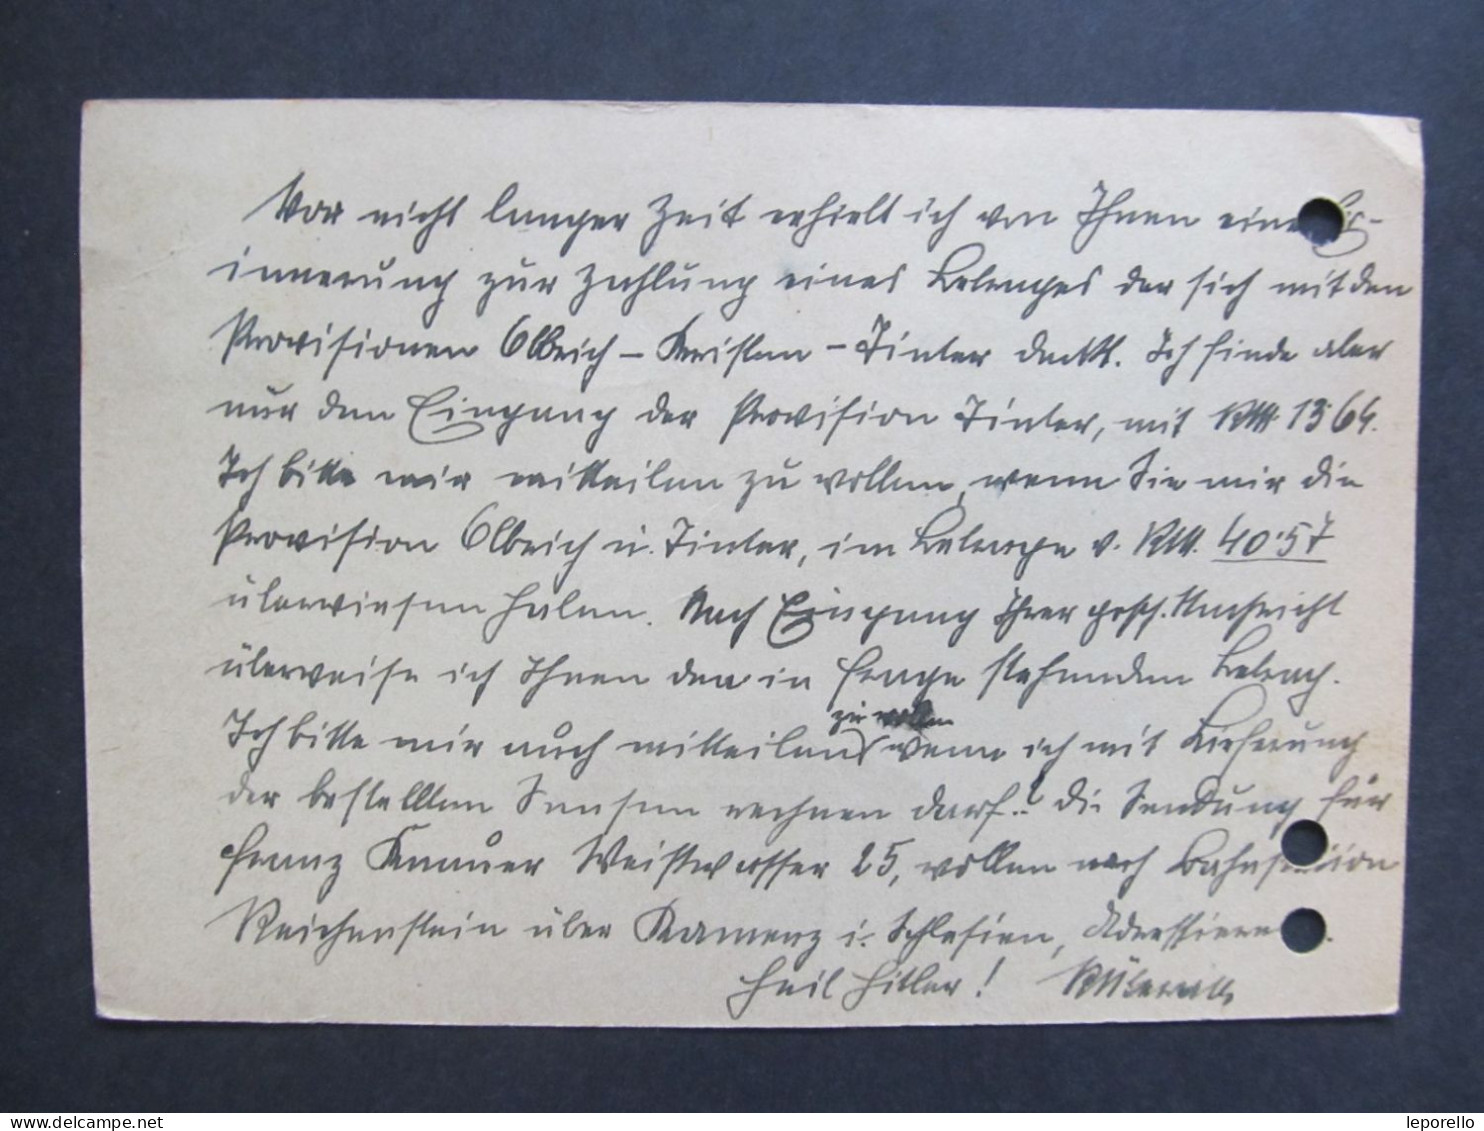 Vor nicht langer Zeit erhielt ich von Ihnen eine Er-
innerung zur Zahlung eines Betrages der sich mit den
Provisionen Olbrich - Kristen - Tinter deckt. Ich finde aber
nur den Eingang der Provision Tinter, mit RM 13·64.
Ich bitte mir mitteilen zu wollen, wenn Sie mir die
Provision Olbrich u. Tinter, im Betrage v. RM. 40·57
überwiesen haben. Nach Eingang Ihrer gesch. Nachricht
überweise ich Ihnen den in Frage stehenden Betrag.
zu wollen
Ich bitte mir auch mitteilen wenn ich mit Lieferung
der bestellten Sensen rechnen darf.? Die Sendung für
Franz Knauer Weisswasser 25, wollen nach Bahnstation
Reichenstein über Kamenz i. Schlesien, Adressieren.
Heil Hitler!
leporello - delcampe.net